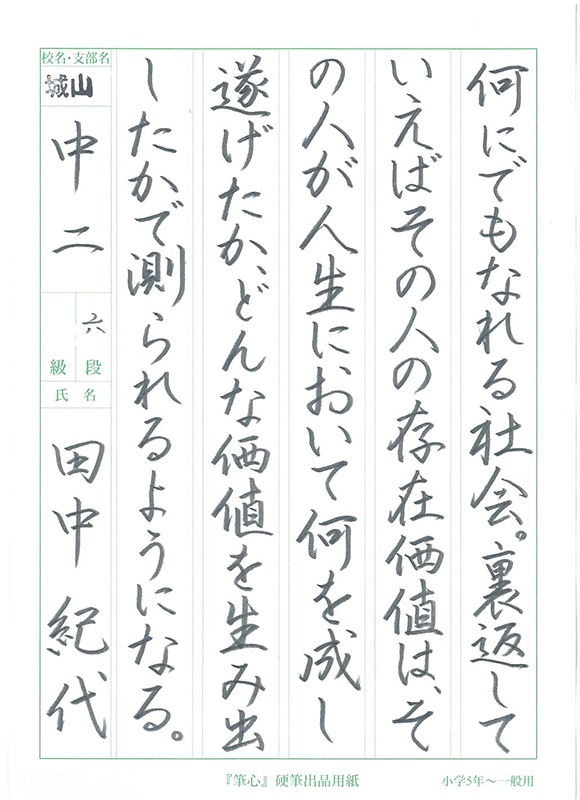 何にでもなれる社会。裏返して
いえばその人の存在価値は、そ
の人が人生において何を成し
遂げたか、どんな価値を生み出
したかで測られるようになる。
校名・支部名
城山
中二
六
級 段
氏名
田中 紀代
『筆心』硬筆出品用紙
小学5年〜一般用